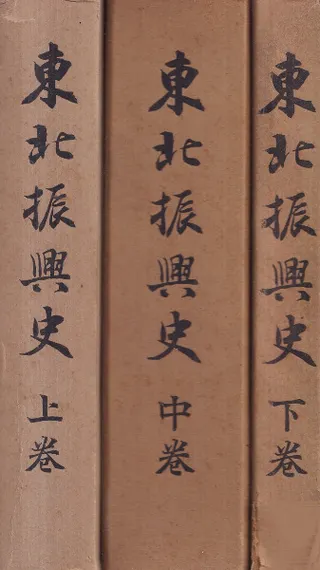 東北振興史 上巻
東北振興史 中巻
東北振興史 下巻